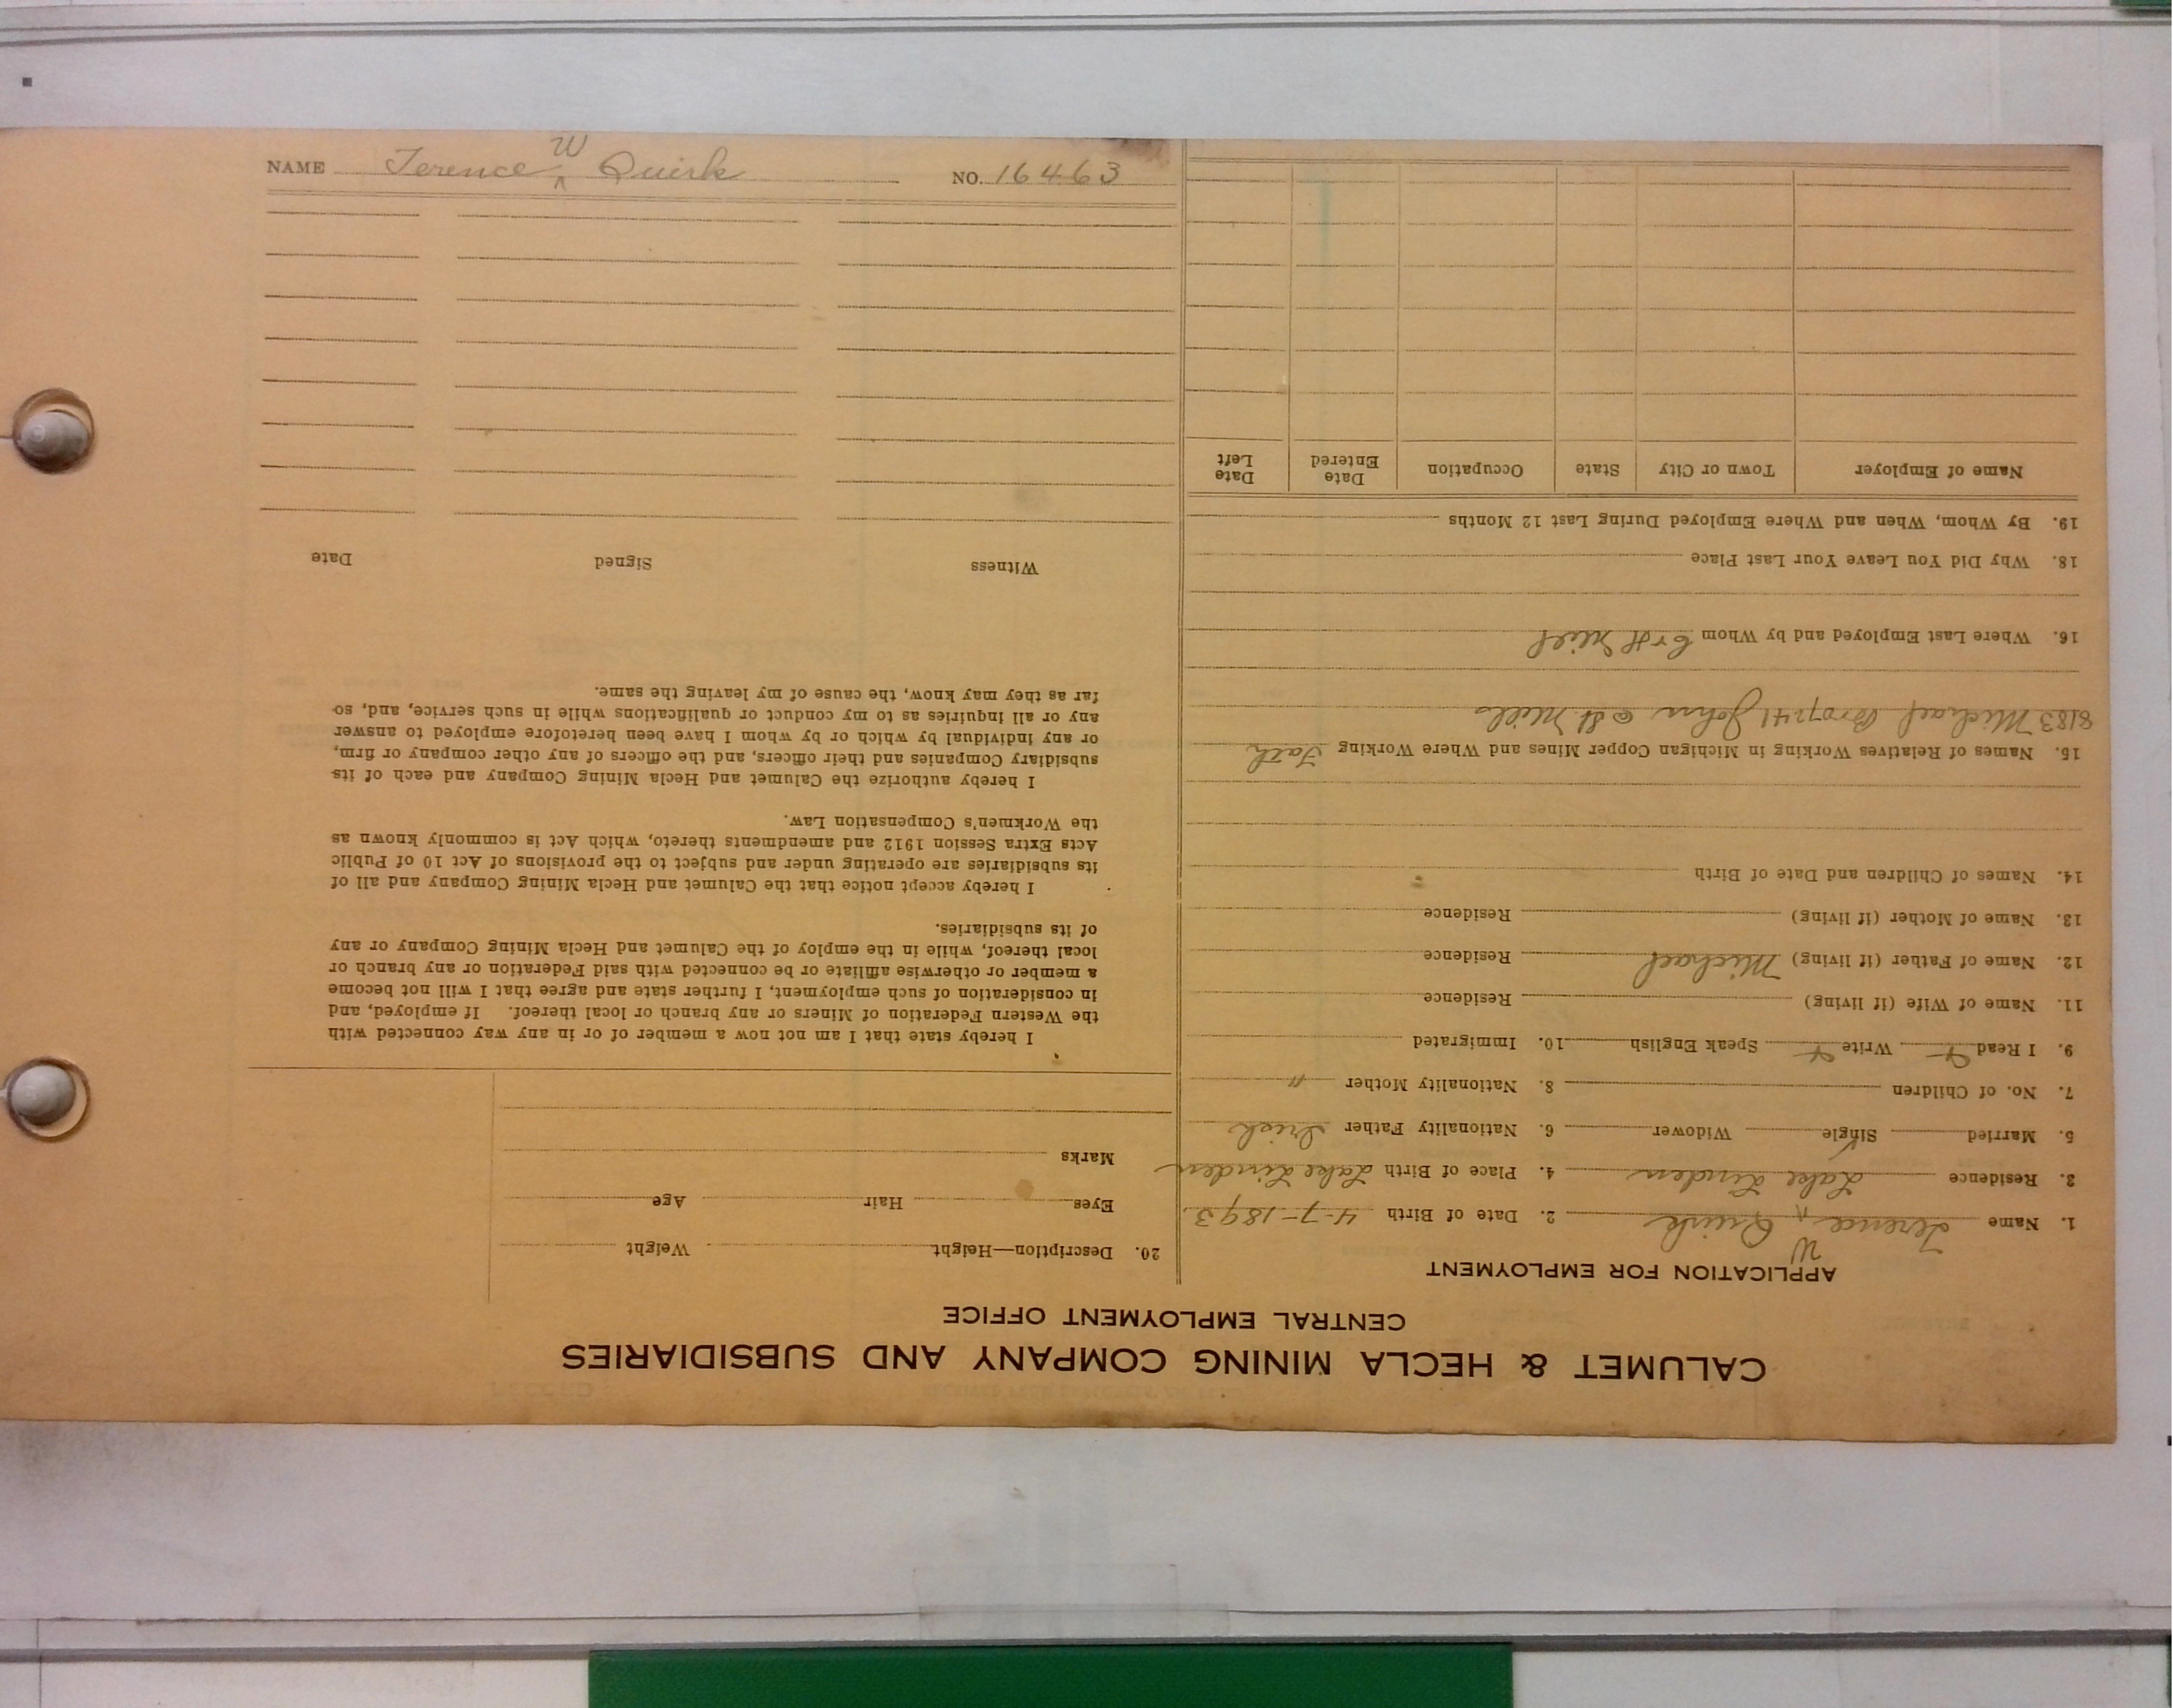 NAME Terence W Quirk NO. 16463
CALUMET & HECLA MINING COMPANY AND SUBSIDIARIES
CENTRAL EMPLOYMENT OFFICE
APPLICATION FOR EMPLOYMENT
1. Name Terence W Quirk 2. Date of Birth 4-7-1893
3. Residence Lake Linden 4. Place of Birth Lake Linden
5. Married Single Widower 6. Nationality Father Irish
7. No. of Children 8. Nationality Mother "
9. I Read Write Speak English 10. Immigrated
11. Name of Wife (if living) Residence
12. Name of Father (if living) Michael Residence
13. Name of Mother (if living) Residence
14. Names of Children and Date of Birth
15. Names of Relatives Working in Michigan Copper Mines and Where Working Fath
8183 Michael Bro 7241 John @ St Mills
16. Where Last Employed and by Whom
18. Why Did You Leave Your Last Place
19. By Whom, When and Where Employed During Last 12 Months
Name of Employer Town or City State Occupation Date Entered Date Left
20. Description—Height Weight
Eyes Hair Age
Marks
I hereby state that I am not now a member of or in any way connected with
the Western Federation of Miners or any branch or local thereof. If employed, and
in consideration of such employment, I further state and agree that I will not become
a member or otherwise affiliate or be connected with said Federation or any branch or
local thereof, while in the employ of the Calumet and Hecla Mining Company or any
of its subsidiaries.
I hereby accept notice that the Calumet and Hecla Mining Company and all of
its subsidiaries are operating under and subject to the provisions of Act 10 of Public
Acts Extra Session 1912 and amendments thereto, which Act is commonly known as
the Workmen's Compensation Law.
I hereby authorize the Calumet and Hecla Mining Company and each of its
subsidiary Companies and their officers, and the officers of any other company or firm,
or any individual by which or by whom I have been heretofore employed to answer
any or all inquiries as to my conduct or qualifications while in such service, and, so
far as they may know, the cause of my leaving the same.
Witness Signed Date